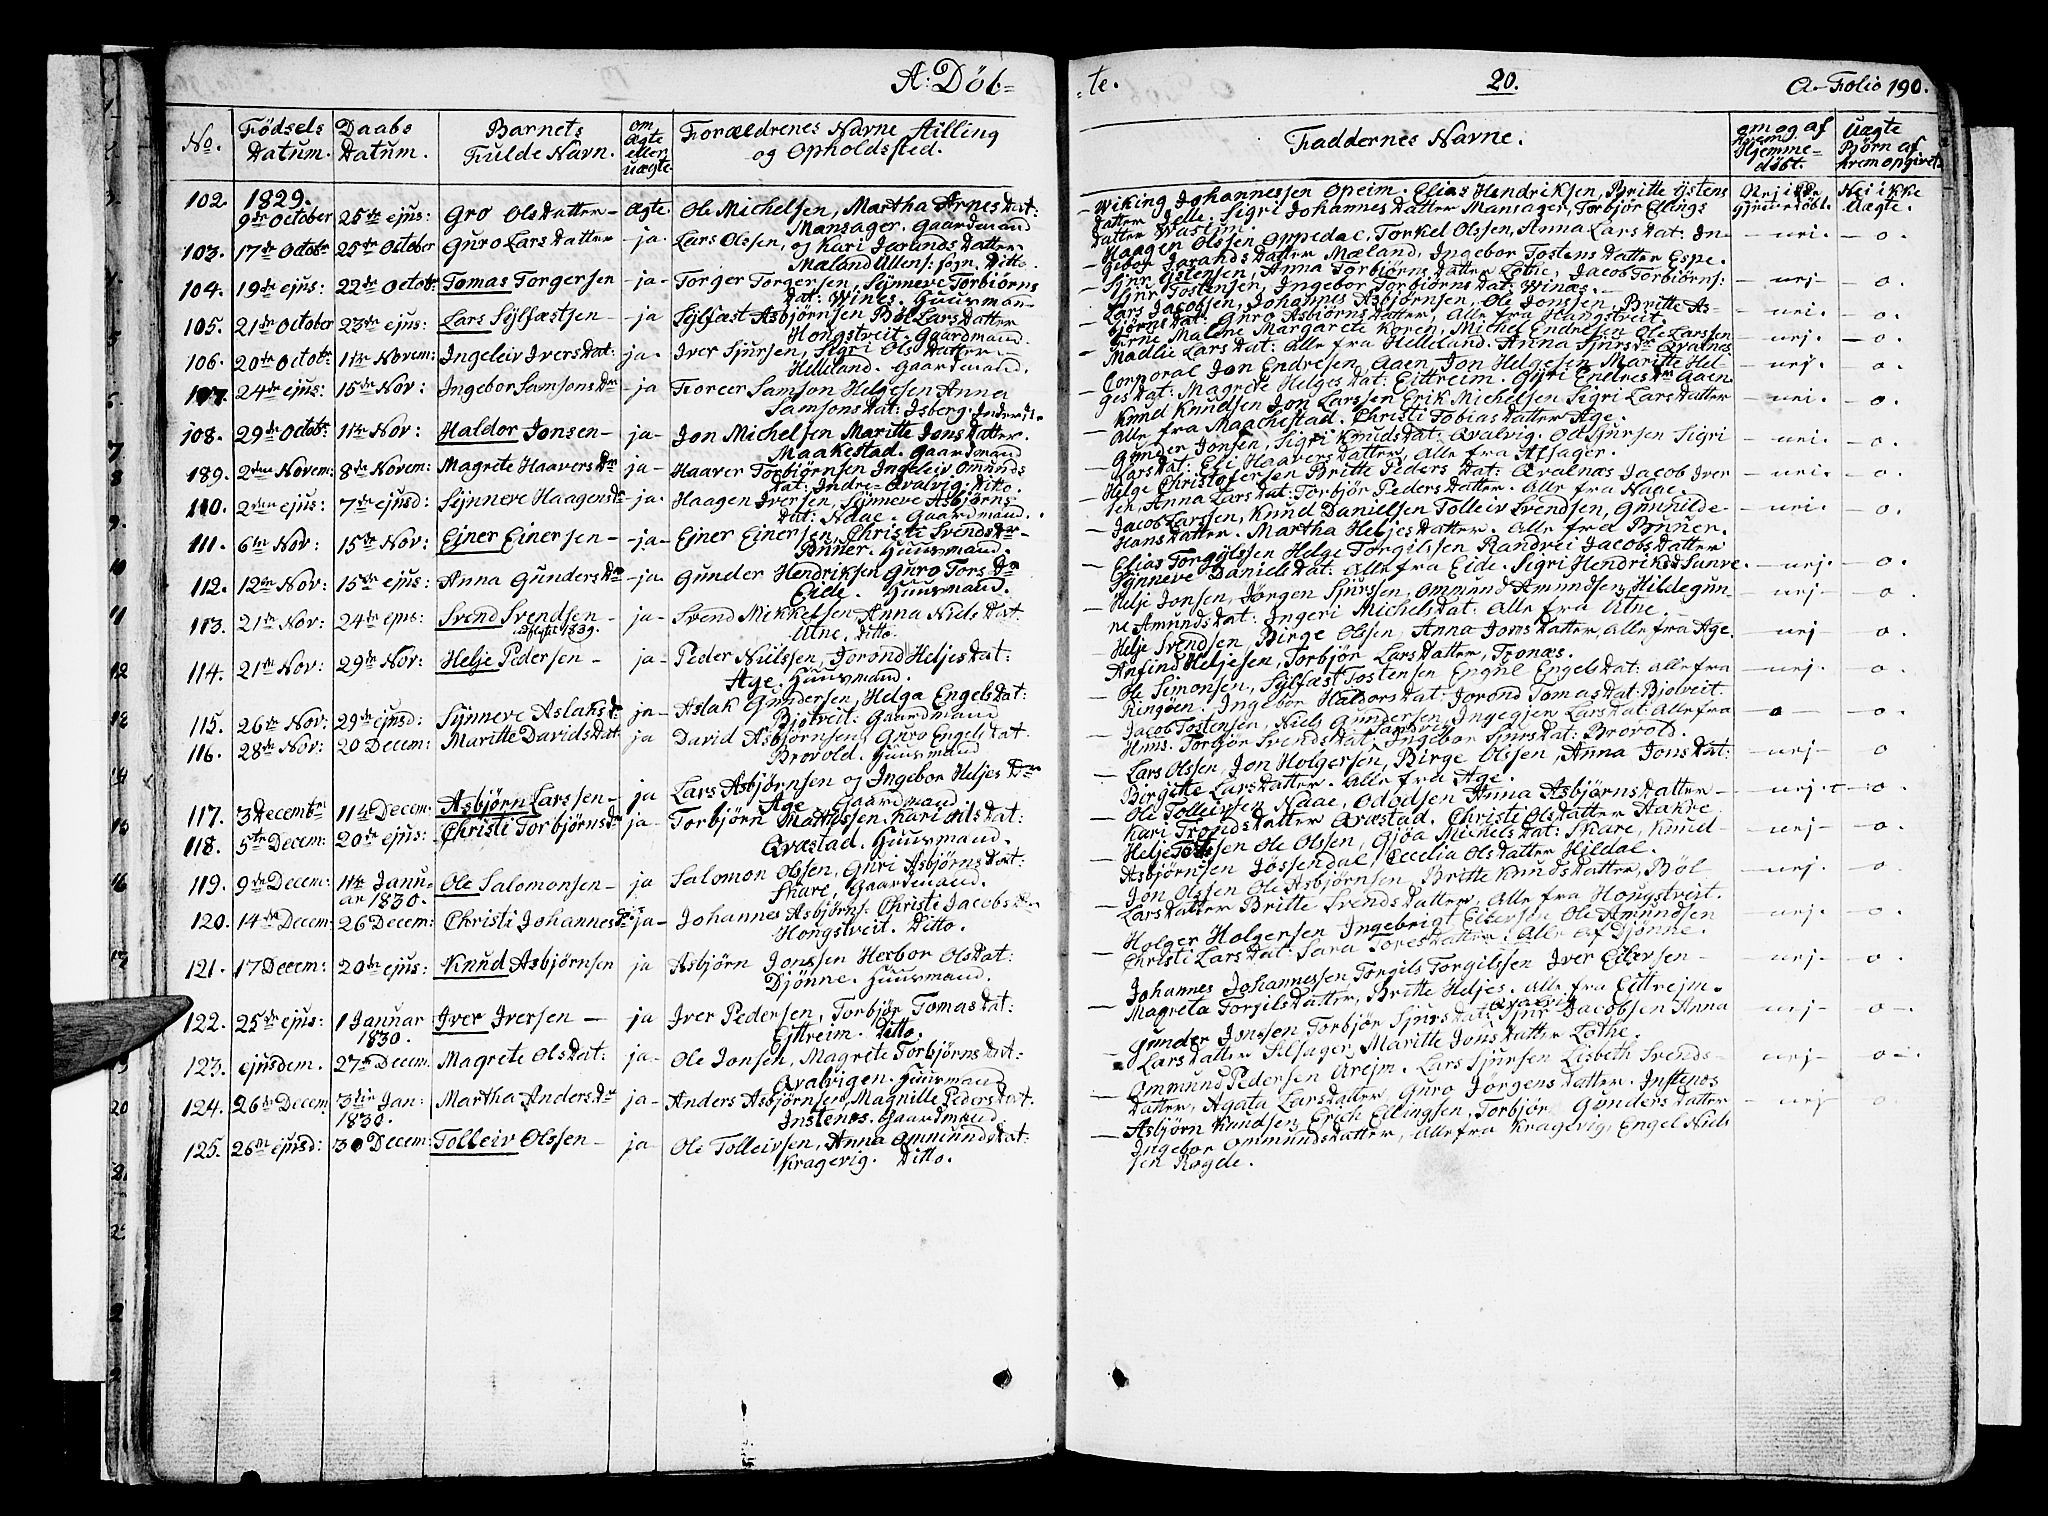 A: Döb-
No.
Födsels Datum.
Daabs Datum.
Barnets Fulde Navn.
om Ægte eller uægte
Forældrenes Navne Stilling og Opholdssted.
102. 1829. 9de October 25de ejus: Gro Olsdatter - Ægte Ole Michelsen, Martha Arnesdat:
Mansager. Gaardmand
103. 17de Octobr 25de October Guro Larsdatter - ja. Lars Olssen, og Kari Jarandsdatter
Mæland Ullens: sogn, Ditto.
104. 19de ejus: 22de Octobr Tomas Torgersen - ja - Torger Torgersen, Synneve Torbiörns
dat: Winæs. Huusmand
105. 21de October 23de ejus: Lars Sylfæstsen - ja Sylfæst Asbjörnsen Böl Larsdatter
Hongstveit. Gaardmand.
106. 20de Octobr 1ste Novem: Ingeleiv Iversdat: ja. Iver Sjursen, Sigri Olsdatter -
Helleland. Gaardmand.
107. 24de ejus: 15de Nov: Ingebor Samsonsdr - ja Foreer Samson Helgesen Anna
Samsonsdat: Isberg.
108. 29de Octobr 11te Nov: Haldor Jonsen - ja - Jon Michelsen Maritte Jonsdatter.
Maakestad. Gaardmand
189. 2den Novem: 8de Novem: Magrete Haaversdr ja - Haaver Torbjörnsen Ingeleiv Omunds
dat: Indre Qvalvig. Ditto.
110. 2den ejus: 7de ejusd: Synneve Haagensdr - ja. Haagen Iversen, Synneve Asbjörns-
dat: Naae. Gaardmand.
111. 6te Nov: 15de Nov: Ejner Einersen - - ja - Ejner Einersen, Christe Svendsdr -
Pynner. Huusmand.
112. 12te Nov: 15de ejus: Anna Gundersdr - ja. Gunder Hendriksen Guro Torsdr
Eide. Huusmand.
113. 21de Nov: 24de ejus: Svend Svendsen - ja - Svend Mikkelsen Anna Nielsdat
1839. Utne. Ditto.
114. 21de Nov: 29de Nov: Helje Pedersen - ja - Peder Nielssen, Jorond Heljesdat:
Age. Huusmand.
115. 26de Nov: 29de ejusd: Synneve Aslaksd: ja - Aslak Gundersen, Helga Engelsdat:
Bjotveit. Gaardmand
116. 28de Nov: 20 Decem: Maritte Davidsdat ja David Asbjörnsen, Guro Engelsdat:
Brovold. Huusmand
117. 3 Decembr 11te Decem: Asbjörn Larssen - ja Lars Asbjörnsen og Ingebor Heljesdr
Age. Gaardmand
118. 5te Decem: 20de ejus: Christi Torbjörnsdr ja - Torbjörn Mathissen, Kari Nilsdat:
Qvæstad. Huusmand.
119. 9de Decem: 11te Janu- ar 1830. Ole Salomonsen - ja Salomon Olssen, Guri Asbjörnsdat:
Skare, Gaardmand.
120. 14de Decem: 26 Decem: Christi Johannesdr ja - Johannes Asbjörns: Christi Jacobsdr
Hongstveit. Ditto.
121. 17 Decem: 20de ejus: Knud Asbjörnsen ja Asbjörn Jonssen Herbor Olsdat:
Djönne. Huusmand.
122. 25de ejus: 1 Januar 1830. Iver Iversen - ja Iver Pedersen, Torbjör Tomasdat:
Eittreim. Ditto.
123. ejusdem. 27de Decem. Magrete Olsdat: ja - Ole Jonsen, Magrete Torbjörnsdat:
Qvalvigen. Huusmand
124. 26de Decem 3die Jan: 1830. Martha Andersdr ja - Anders Asbjörnsen, Magnille Pedersdat.
Instenæs. Gaardmand.
125. 26de ejusd: 30 Decem: Tolleiv Olssen - ja Ole Tolleivsen, Anna Ommundsdat:
Kragevig. Ditto.
te.
20.
A. Folio 190.
Faddernes Navne.
om og af hvem Hjemmedöbt.
Uægte Börn af hvem opgivet
Wiking Johannessen Opeim. Elias Hendriksen, Britte Ystens Nej ikke Nei ikke
datter Jelle. Sigri Johannesdatter Mansager, Torbjör Ellings Hjemmedöbt. Uægte.
datter
- Haagen Olssen Oppedal, Torkel Olssen, Anna Larsdat: In- - nei. - o.
gebor Jarandsdatter Mæland, Ingebor Tostensdatter Espe.
- Sjur Ystensen, Anna Torbjörnsdatter Lothe, Jacob Torbiörns:
Sjur Tostensen, Ingebor Torbiörnsdat: Winæs. - nej - - o.
- Lars Jacobsen, Johannes Asbjörnsen, Ole Jonssen, Britte As-
björnsdat: Guro Asbiörnsdatter, Alle fra Hangstveit - nei. - o.
Malene Margarete Koren, Michel Endresen Ole Larssen
- Madlie Larsdat: Alle fra Helleland. Anna Sjursdr Qvalnæs - nej. - o.
Corporal Jon Endresen Aaen, Jon Helgesen, Maritte Hel- - nej. o.
gesdat: Magrete Helgesdat: Eittreim. Guri Endresdr Aaen.
- Knud Knudsen Jon Larssen Erik Michelsen Sigri Larsdatter - nei. - o.
Alle fra Maachestad. Christi Tobiasdatter Age.
- Gunder Jonsen, Sigri Knudsdat: Qvalvig. Odt Sjursen Sigri - nei. - o.
Larsdat: Eli Haaversdatter, Alle fra Alsager.
- Helge Christofersen Britte Pedersdat: Qvalnæs Jacob Iver - nei. - o.
sen, Anna Larsdat: Torbjör Pedersdatter. Alle fra Naae.
- Jacob Larssen, Knud Danielsen Tolleiv Svendsen, Gunnilde - nei. - o.
Hansdatter. Martha Heljesdatter. Alle fra Pynner.
- Elias Torgilssen Helge Torgilssen Randvei Jacobsdatter
Synneve Danielsdat: Alle fra Eide. Sigri Hendriksd - nej. - o.
- Helje Jonsen, Jörgen Sjurssen, Ommund Amundsen, Hildegun- - nej - o.
ne Amundsdat: Ingeri Michelsdat: Alle fra Utne.
- Helje Svendsen Birge Olssen, Anna Jonsdatter, Alle fra Age. - nej - o.
Anfind Heljesen, Torbjör Larsdatter, Tronæs.
- Ole Simonsen, Sylfæst Tostensen Engel Engelsdat: Alle fra - nej. - o.
Ringöen. Ingebor Haldorsdat: Jorond Tomasdat: Bjotveit.
- Jacob Tostensen, Niels Gundersen, Ingegjer Larsdat: Alle fra - o - - o.
Torbjör Svendsdat: Ingebor Sjursdat: Brovold.
- Lars Olssen, Jon Holgersen, Birge Olssen, Anna Jonsdat: - nej - o
Birgitte Larsdatter. Alle fra Age.
- Ole Tolleivsen Naae, Odd Odsen Anna Asbjörnsdatter - - nej. - o.
Kari Trondsdatter Qvæstad. Christi Olsdatter Aakre
- Helje Ole Olssen, Gjöa Michelsdat: Skare, Knud - nej - - o.
Asbjörnsen Jössendal, Cecelia Olsdatter Hildal.
- Jon Olssen Ole Asbjörnsen, Britte Knudsdatter, Böl - nej. - o.
Larsdatter Britte Svendsdatter, Alle fra Hongstveit.
- Holger Holgersen Ingebrigt Eilersen Ole Amundsen - nej. - o.
Christi Larsdat: Sara Toresdatter. Alle af Djönne.
- Johannes Johannessen, Torgils Torgilssen Iver Eilersen - - nej. - o.
Magreta Torgilsdatter, Britte Heljes. Alle fra Eittrejm.
- Gunder Jonsen Torbjör Sjursdat: Qvalvig Sjur Jacobsen Anna nej - o.
Larsdatter Alsager, Maritte Jonsdatter Lothe.
- Ommund Pedersen Arejm. Lars Sjursen Lisbeth Svends- - nej - o.
datter, Agata Larsdatter, Guro Jörgensdatter. Instenos
- Asbjörn Knudsen, Erich Ellingsen, Torbjör Gundersdatter - nej - o.
Ingebor Ommundsdatter, Alle fra Kragevig, Engel Niels
sen Rogde.